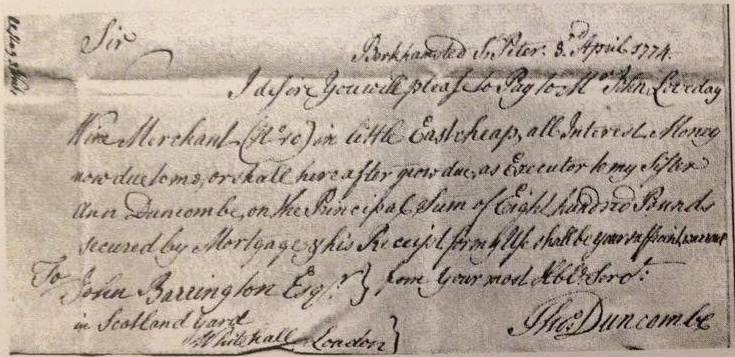 Sir
Berkhamsted St. Peter. 3.d April 1774.
I desire You will please to Pay to Mr. John Loveday
Wine Merchant (No. 10) in little Eastcheap, all Interest Money
now due to me, or shall hereafter grow due, as Executor to my Sister
Ann Duncombe, on the Principal Sum of Eight hundred Pounds
secured by Mortgage & his Receipt for my Use shall be your sufficient
To John Barrington Esqr. } from Your most Hble. Servt.
in Scotland Yard
Whitehall London }
Thos. Duncombe